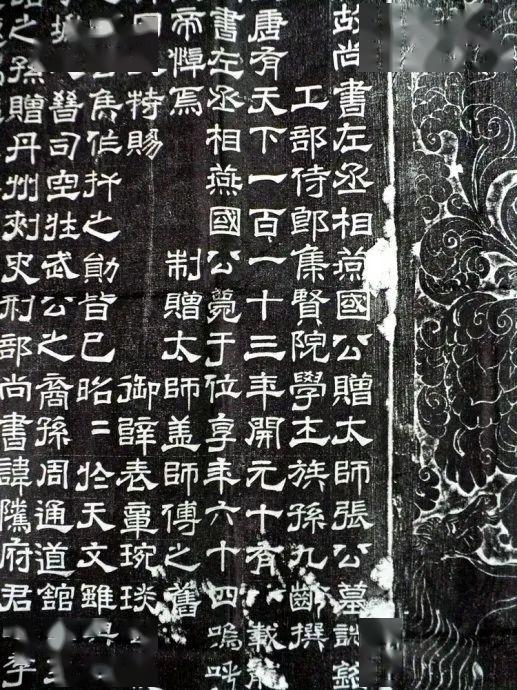 尚書左丞相燕國公贈太師張公墓誌
工部侍郎集賢院學士族孫九齡撰
唐有天下一百一十三年開元十有載龍
書左丞相燕國公薨于位享年六十四嗚呼
帝悼焉 制贈太師盖師傅之舊
特賜 御辭表章琬琰
作扞之勛皆已昭二於天文雖
晉司空壯武公之裔孫周通道館
之孫贈丹州刺史刑部尚書諱騭府君季